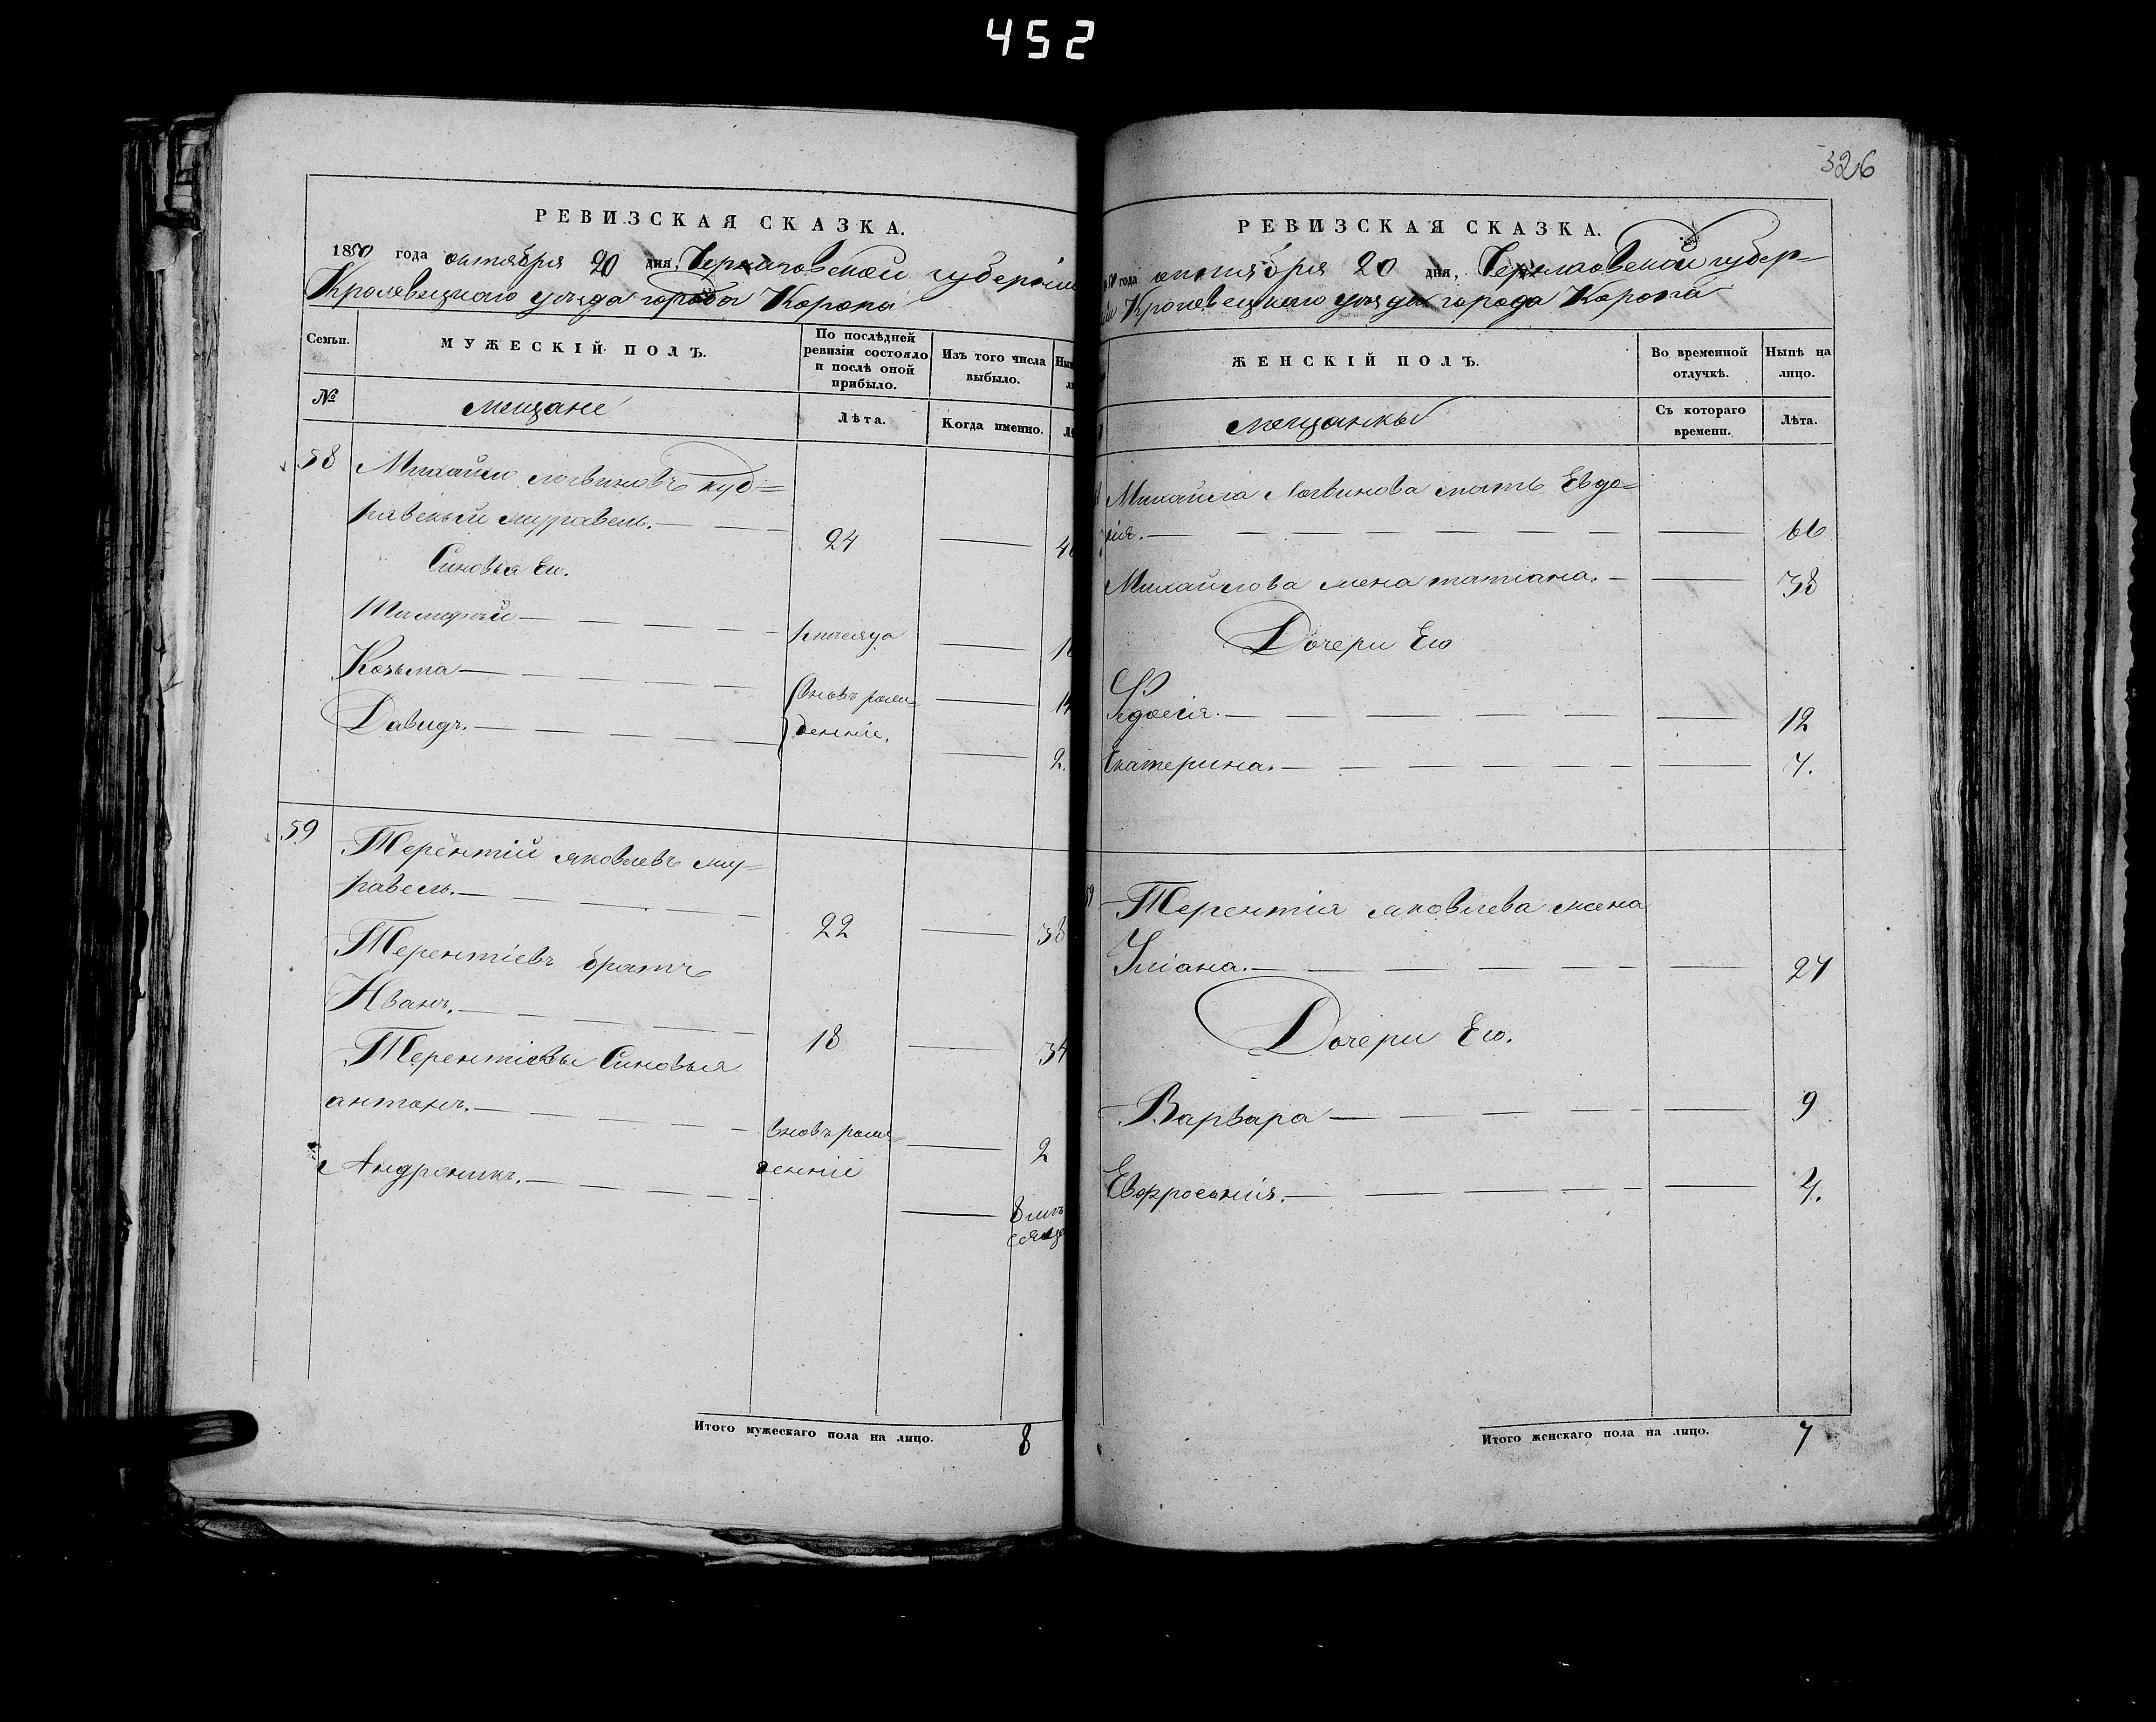 452
РЕВИЗСКАЯ СКАЗКА.
1850 года октября 20 дня, Черниговской губерніи
Кролевецкаго уѣзда города Коропа
Семьи.
МУЖЕСКІЙ ПОЛЪ.
По послѣдней
ревизіи состояло
и послѣ оной
прибыло.
Изъ того числа
выбыло.
№
мещане
Лѣта.
Когда именно.
58
Михайло Логвиновъ
равель муравель.
24
Синовья Его.
Тимофѣй
Козьма
Давидъ.
вновь рож-
деннiе.
14
2.
59
Терентій яковлевъ му-
равель.
22
38
Терентіевъ братъ
Иванъ.
18
34
Терентіевы Синовья
антонъ.
вновь рож-
деннiе
2
Андроникъ.
8 мѣ-
сяца
Итого мужескаго пола на лицо.
8
326
РЕВИЗСКАЯ СКАЗКА.
года октября 20 дня, Черниговской губер-
ніи Кролевецкаго уѣзда города Коропа
ЖЕНСКІЙ ПОЛЪ.
Во временной
отлучкѣ.
Нынѣ на
лицо.
мещанкы
Съ котораго
времени.
Лѣта.
Михайла Логвинова мать Евдо-
кія.
66
Михайлова жена татіана.
38
Дочери Его
Федосія.
12
Екатерина.
7.
Терентія яковлева жена
Уліана.
27
Дочери Его.
Варвара
9
Евфросинія.
4.
Итого женскаго пола на лицо.
7